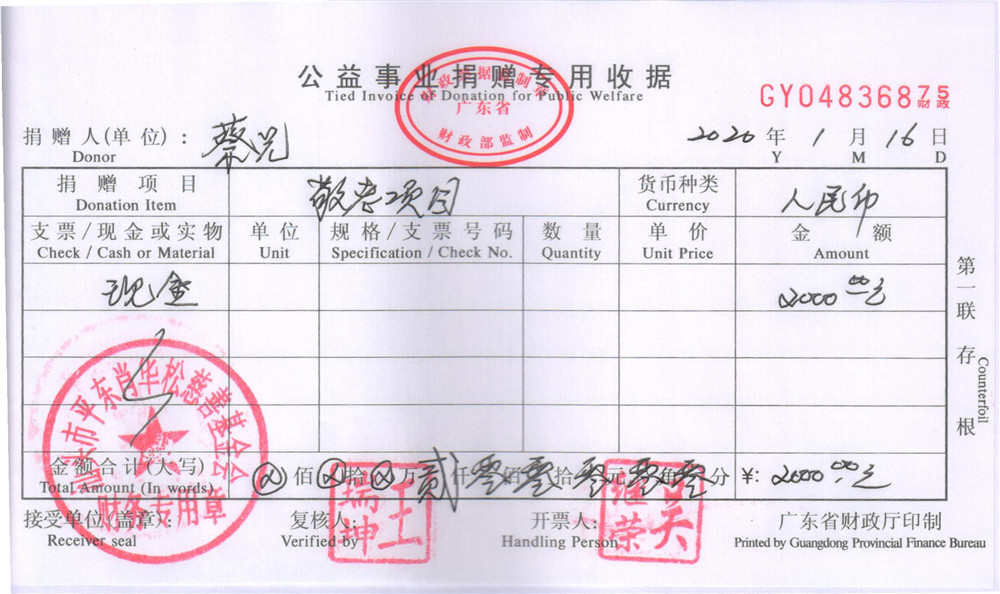 公益事业捐赠专用收据
Tied Invoice of Donation for Public Welfare
财政票据监制章
广东省
财政部监制
GY04836875
财政
捐赠人(单位):蔡
Donor
2020 年 1 月 16 日
Y M D
捐赠项目 敬老项目 货币种类 人民币
Donation Item Currency
支票/现金或实物 单位 规格/支票号码 数量 单价 金额
Check / Cash or Material Unit Specification / Check No. Quantity Unit Price Amount
现金 2000.00元
第一联存根
Counterfoil
市平东肖华松慈善基金会
财务专用章
金额合计(大写) ⊗佰⊗拾⊗万贰仟零佰零拾零元零角零分 ¥: 2000.00元
Total Amount (In words)
接受单位(盖章): 复核人: 开票人: 广东省财政厅印制
Receiver seal Verified by Handling Person Printed by Guangdong Provincial Finance Bureau
王瑞坤
吴继荣